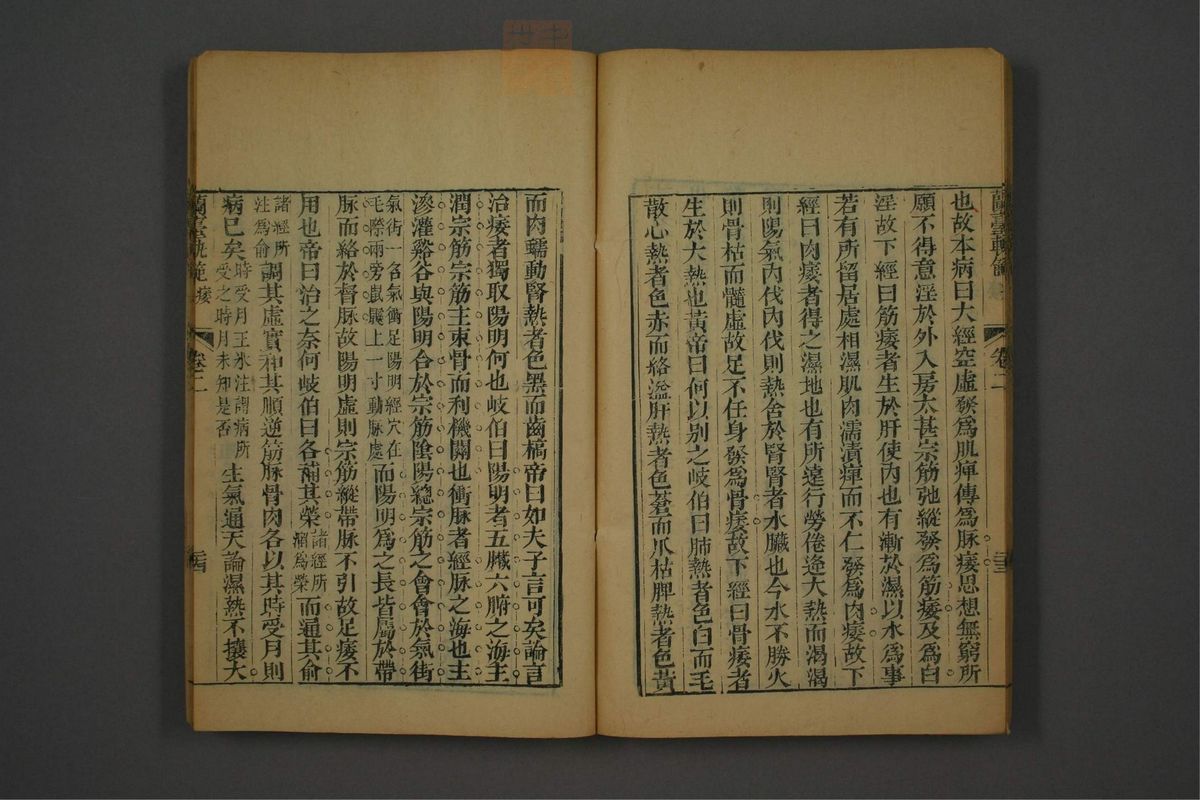 蘭臺軌範
卷二
二十三
也故本病曰大經空虛發為肌痺傳為脉痿思想無窮所
願不得意淫於外入房太甚宗筋弛縱發為筋痿及為白
淫故下經曰筋痿者生於肝使內也有漸於濕以水為事
若有所留居處相濕肌肉濡漬痺而不仁發為肉痿故下
經曰肉痿者得之濕地也有所遠行勞倦逢大熱而渴渴
則陽氣內伐內伐則熱舍於腎腎者水臟也今水不勝火
則骨枯而髓虛故足不任身發為骨痿故下經曰骨痿者
生於大熱也黃帝曰何以別之岐伯曰肺熱者色白而毛
敗心熱者色赤而絡溢肝熱者色蒼而爪枯脾熱者色黃
而肉蠕動腎熱者色黑而齒槁帝曰如夫子言可矣論言
治痿者獨取陽明何也岐伯曰陽明者五臟六腑之海主
潤宗筋宗筋主束骨而利機關也衝脉者經脉之海也主
滲灌谿谷與陽明合於宗筋陰陽總宗筋之會會於氣街
氣街一名氣衝足陽明經穴在
毛際兩旁鼠鼷上一寸動脉處
而陽明為之長皆屬於帶
脉而絡於督脉故陽明虛則宗筋縱帶脉不引故足痿不
用也帝曰治之奈何岐伯曰各補其滎
諸經所
溜為滎
而通其俞
諸經所
注為俞
調其虛實和其順逆筋脉骨肉各以其時受月則
病已矣
時受月王氷注謂病所
受之時月未知是否
生氣通天論濕熱不攘大
蘭臺軌範
痿
卷二
二十四